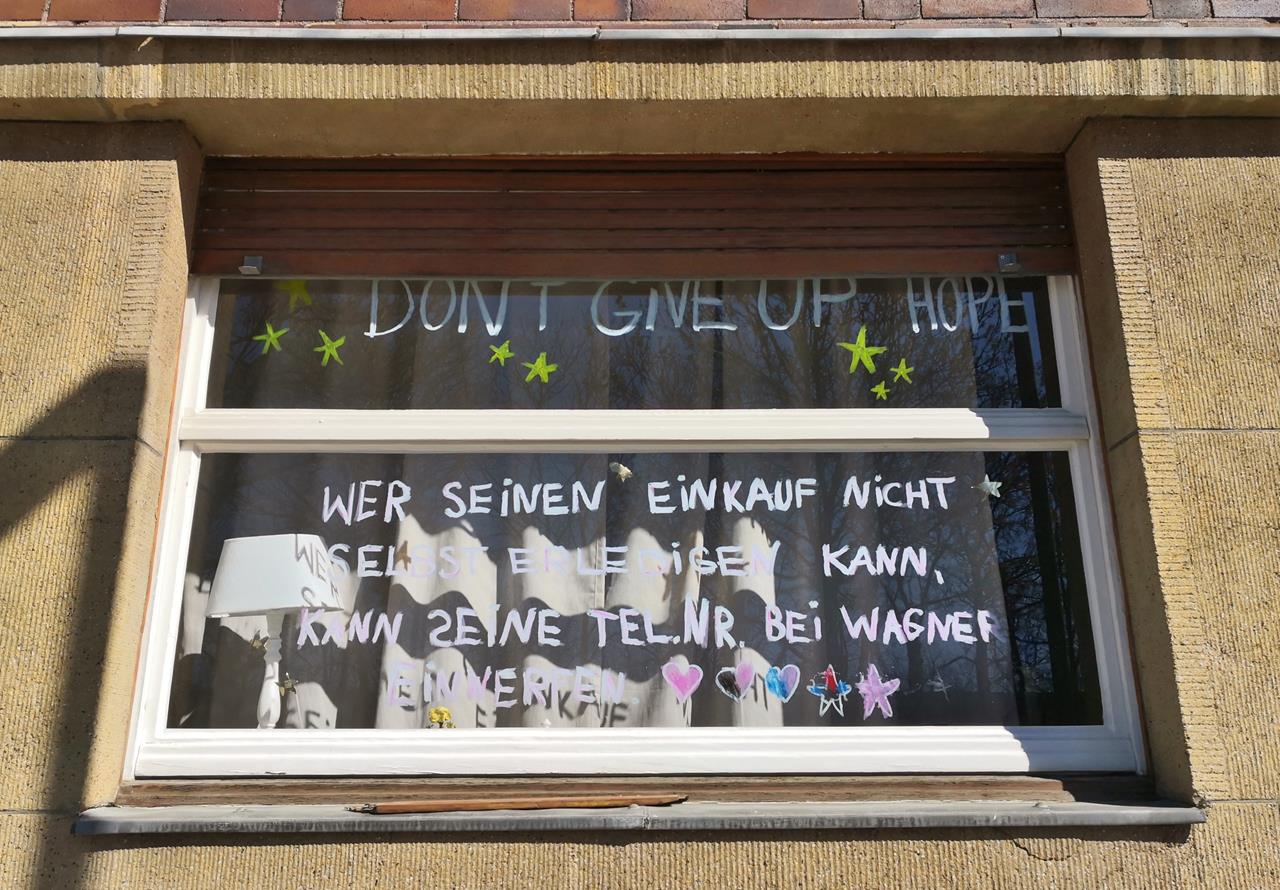 DON'T GIVE UP HOPE
WER SEINEN EINKAUF NICHT
SELBST ERLEDIGEN KANN,
KANN SEINE TEL.NR. BEI WAGNER
EINWERFEN.